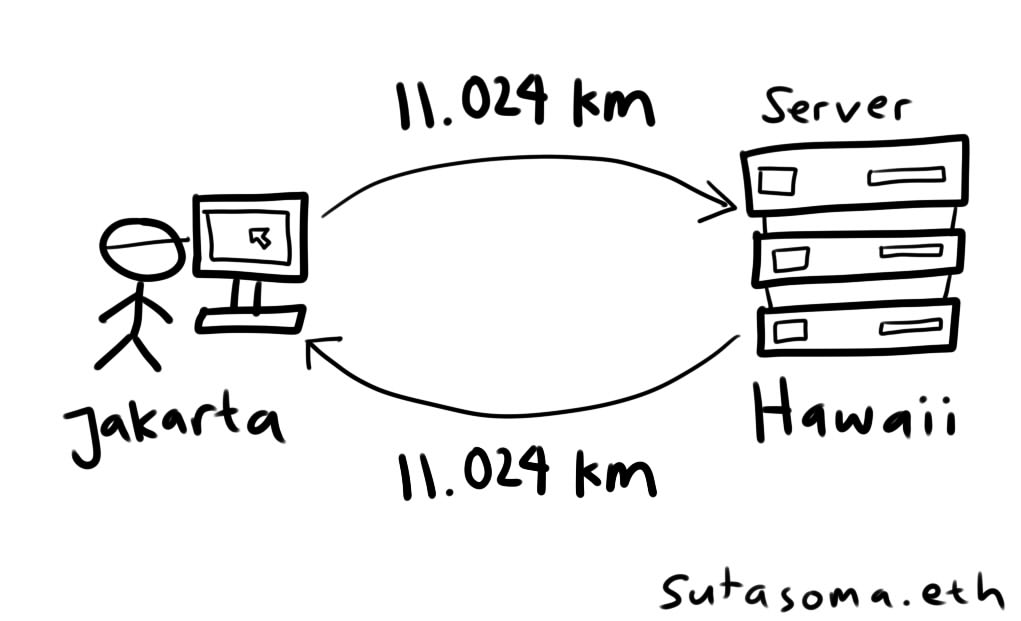 11.024 km
Server
Jakarta
Hawaii
11.024 km
sutasoma.eth